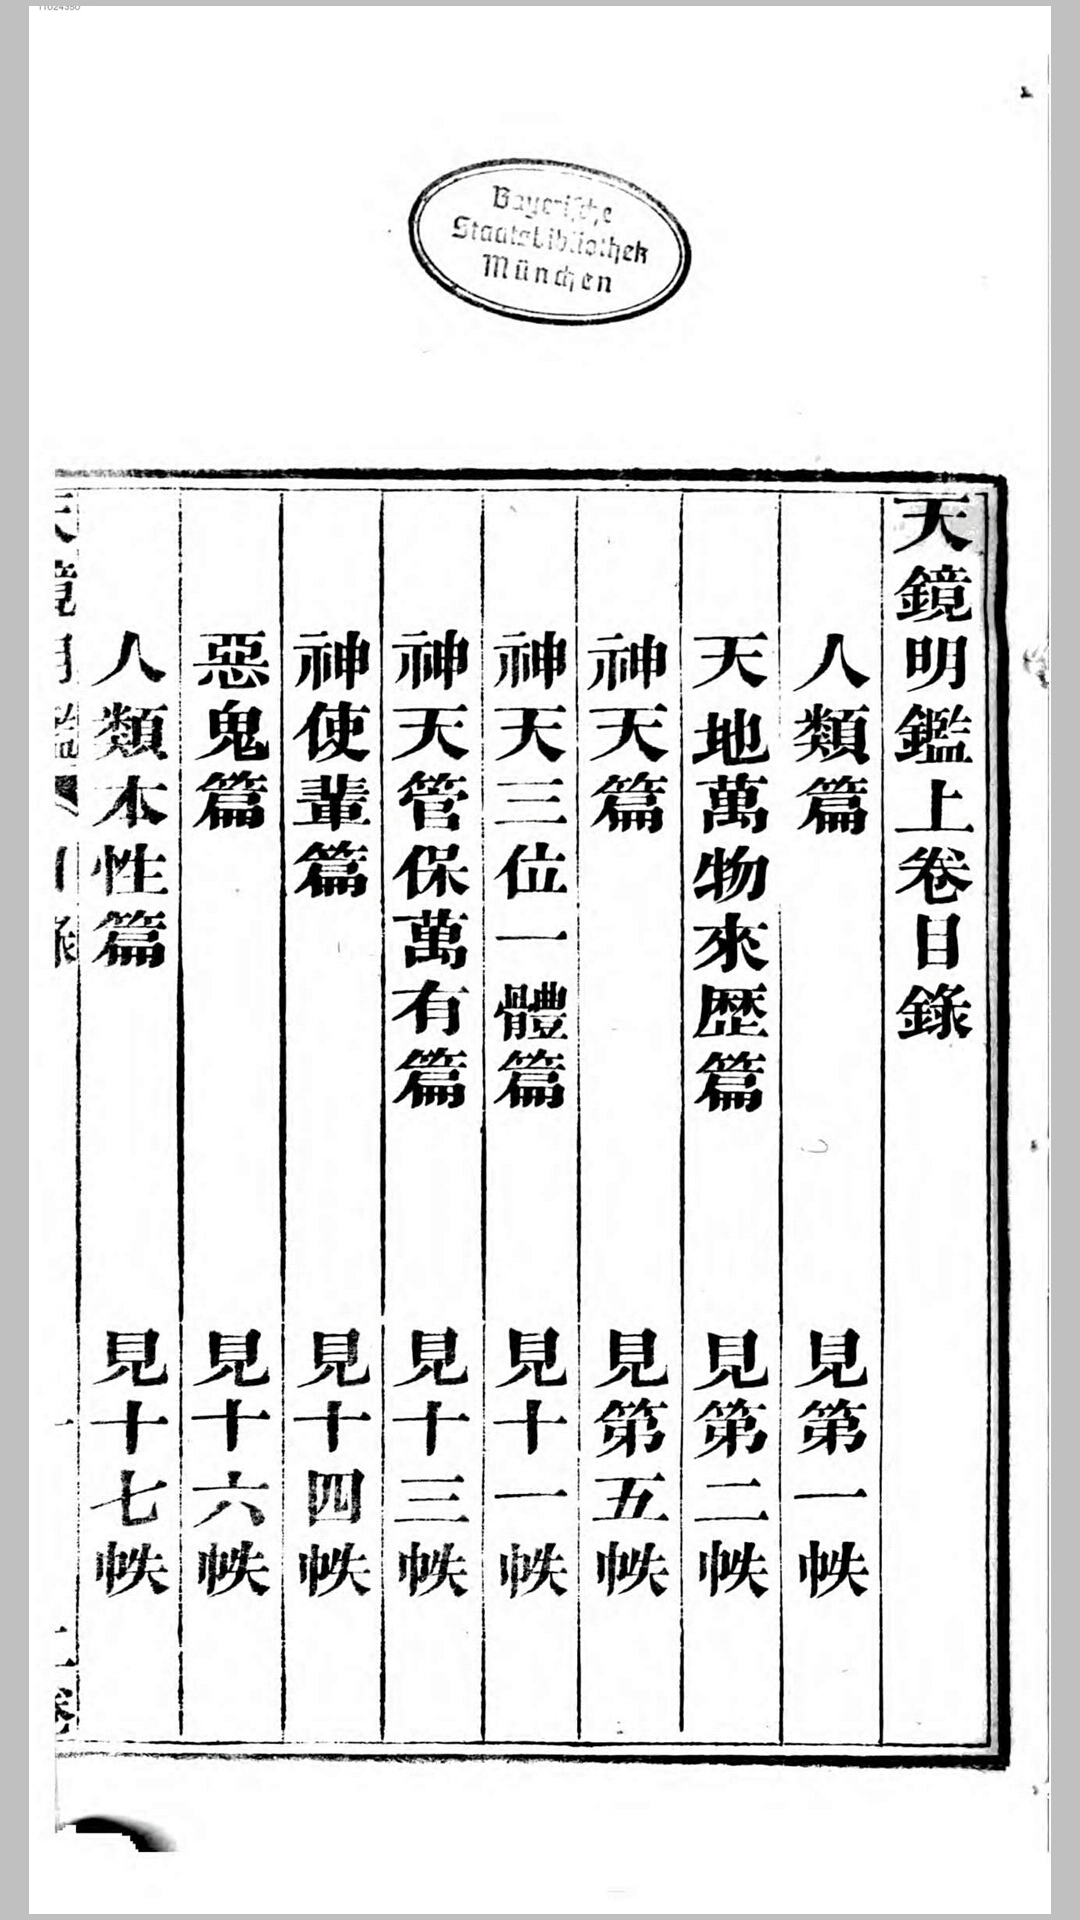 11024380
Bayerische
Staatsbibliothek
München
天鏡明鑑上卷目錄
人類篇 見第一帙
天地萬物來歷篇 見第二帙
神天篇 見第五帙
神天三位一體篇 見十一帙
神天管保萬有篇 見十三帙
神使輩篇 見十四帙
惡鬼篇 見十六帙
人類本性篇 見十七帙